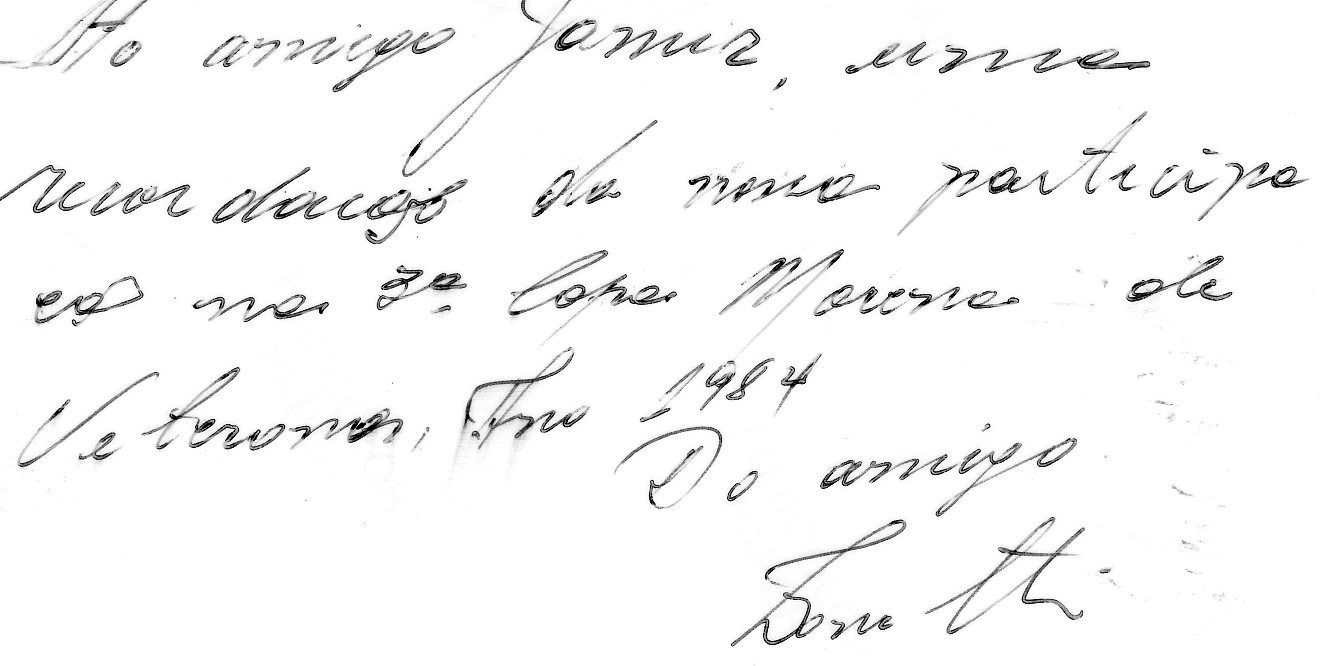 Ao amigo Jamir, uma
recordação da nossa participa
ção na 3ª Copa Morena de
Veteranos, Ano 1984
Do amigo